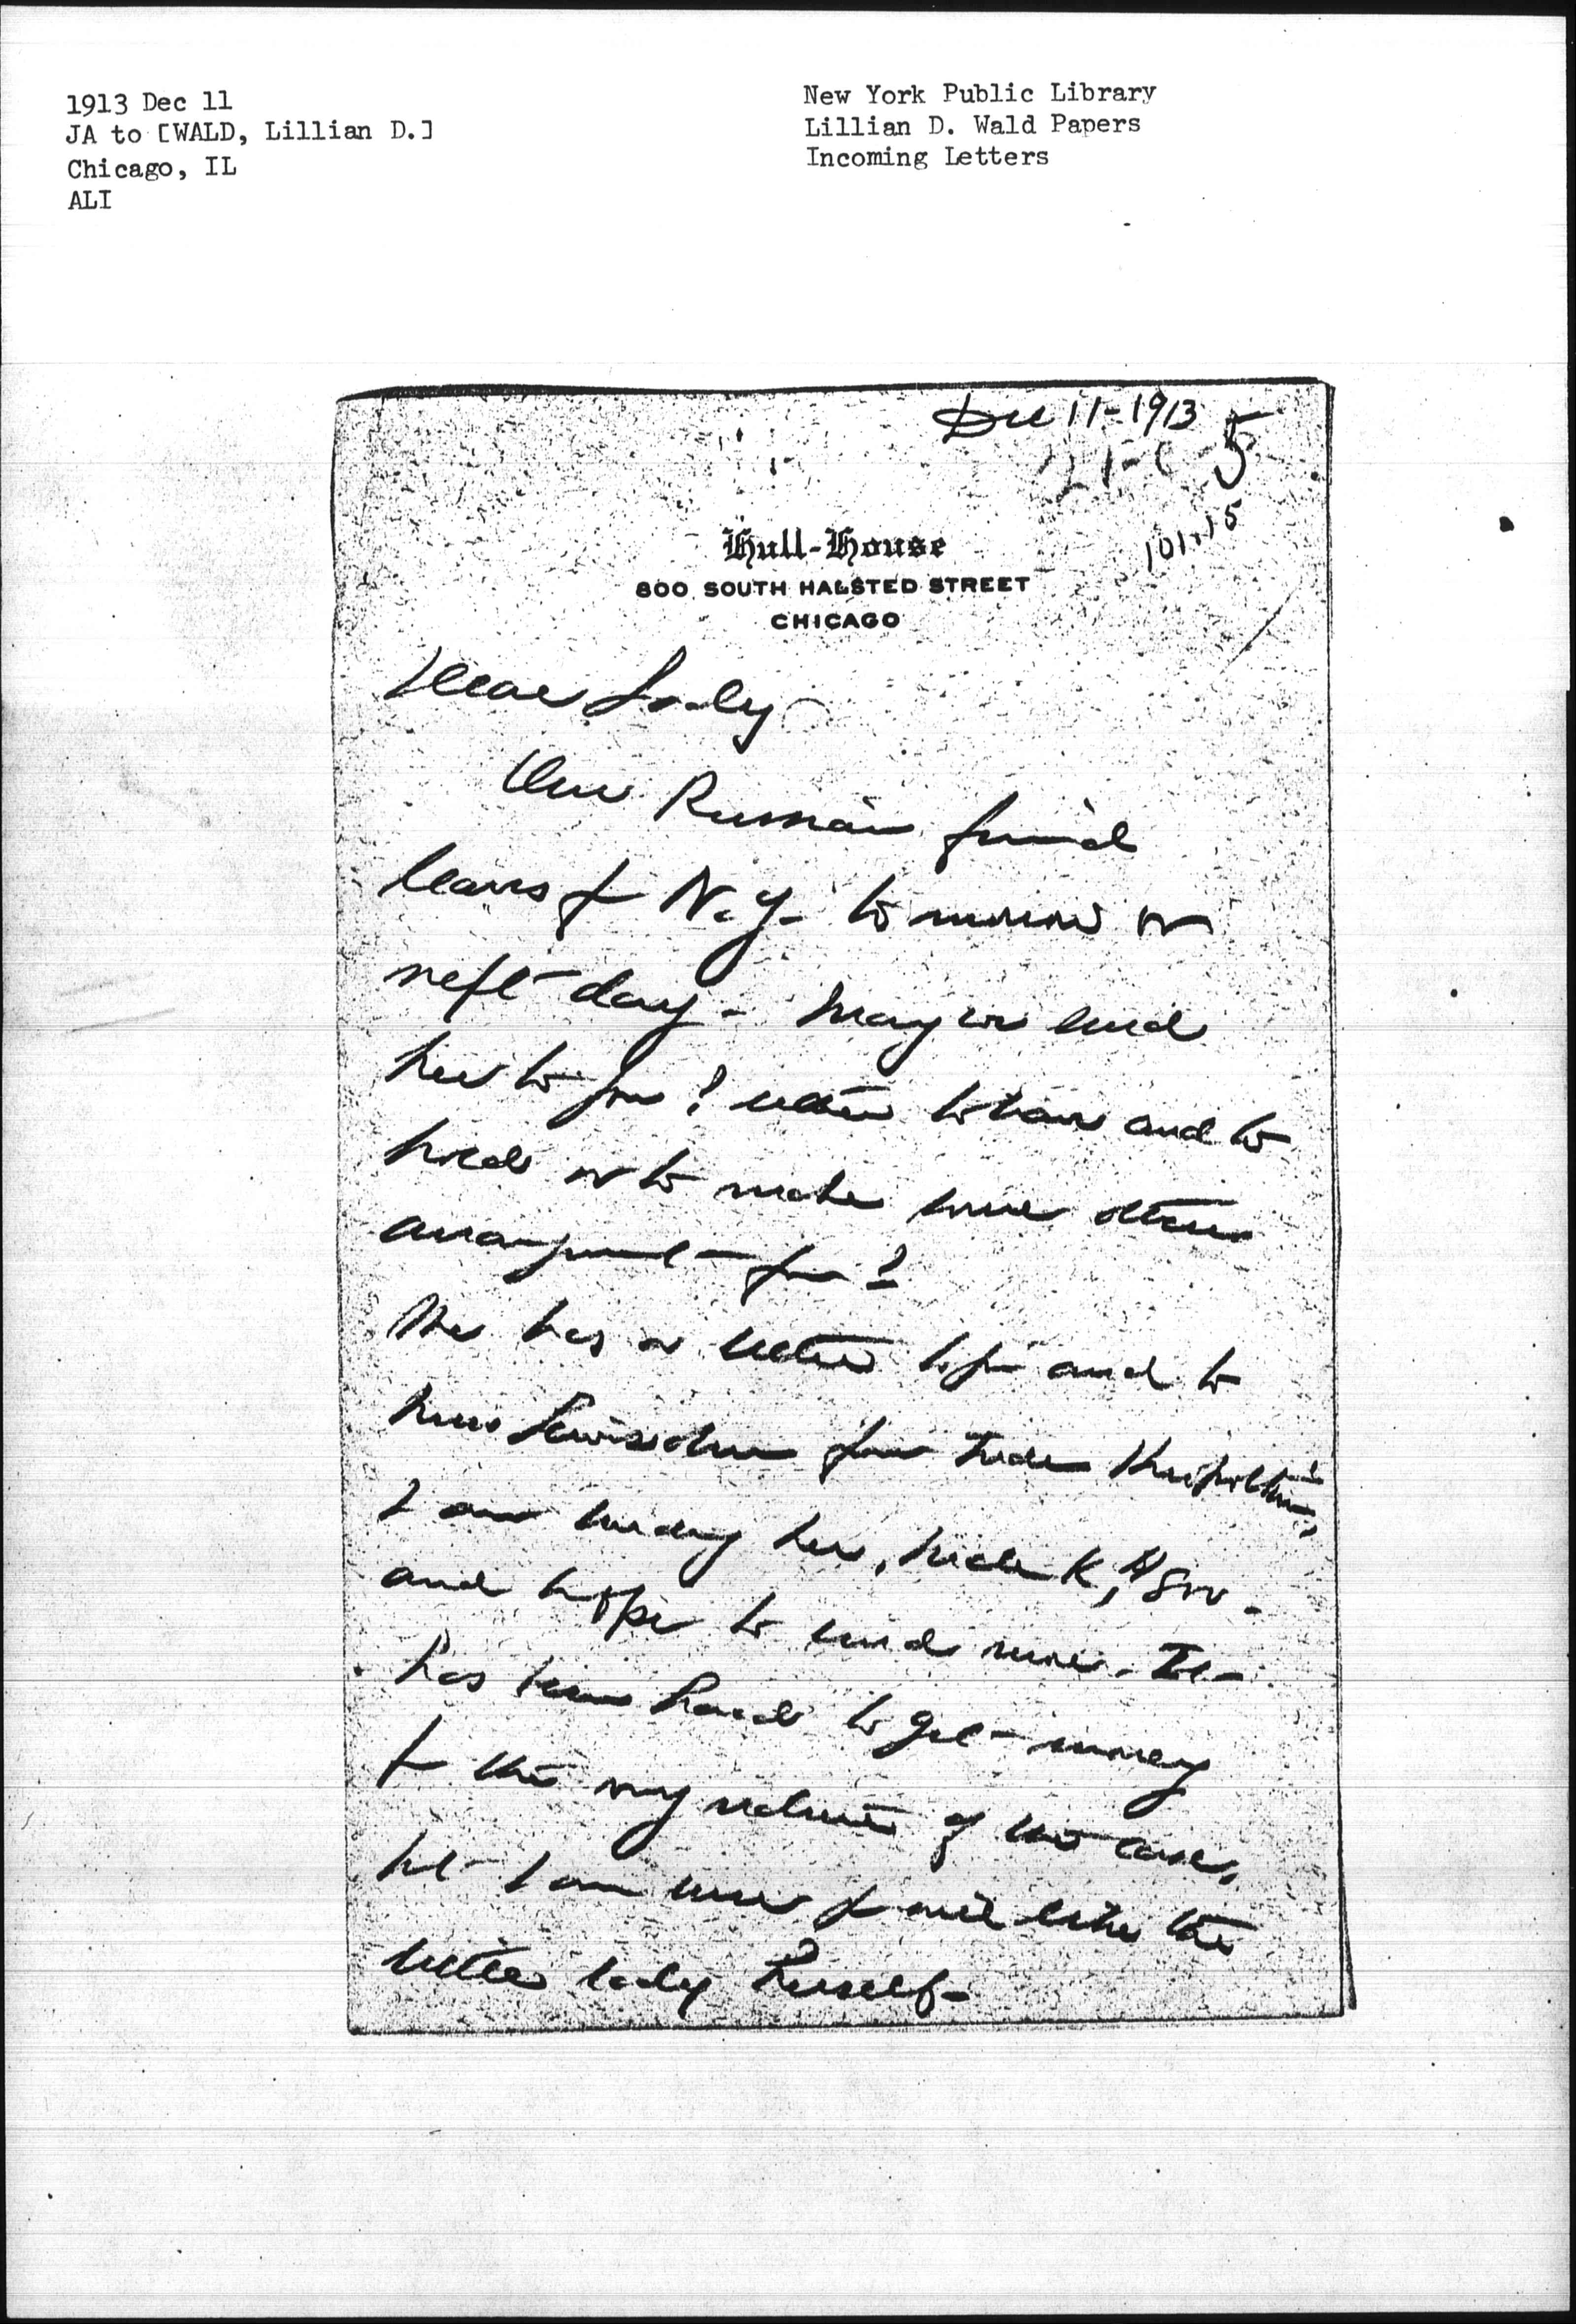 1913 Dec 11
JA to [WALD, Lillian D.]
Chicago, IL
ALI
New York Public Library
Lillian D. Wald Papers
Incoming Letters
Dec 11-1913
5
Hull-House
800 SOUTH HALSTED STREET
CHICAGO
Dear Lady
Our Russian friend
leaves for N.Y. tomorrow or
next day - May we send
her to you? either to have and to
hold or to make some other
arrangement for?
She has a letter to you and to
Miss Lewisohn from
I am sending her, K, $800.
and hope to send more. It
has been hard to get money
for the very nature of the case,
but I am sure you will like the
little lady herself -